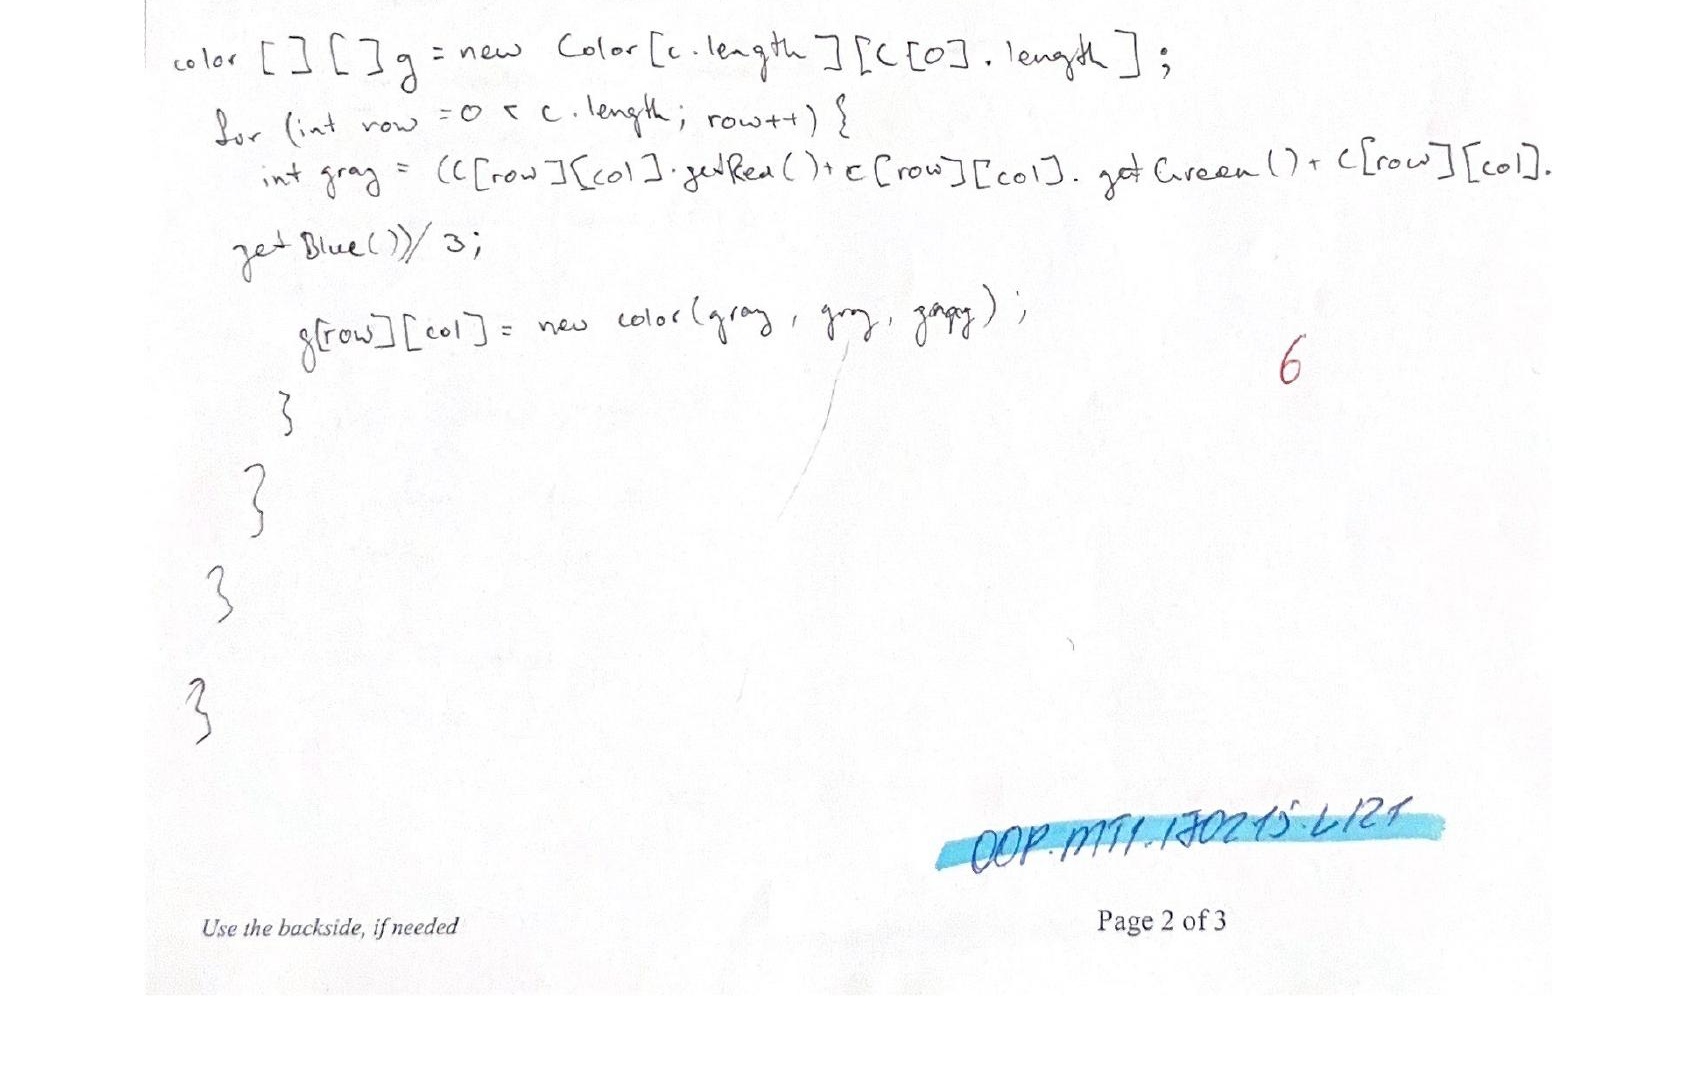 color [ ] [ ] g = new Color [c.length] [C[0].length];
for (int row =0 < c.length; row++) {
int gray = ((C[row][col].getRed()+ c[row][col]. getGreen()+ C[row][col].
getBlue())/ 3;
g[row][col] = new color(gray, gray, gray);
6
}
}
}
}
OOP.MT1.170215.L121
Use the backside, if needed
Page 2 of 3